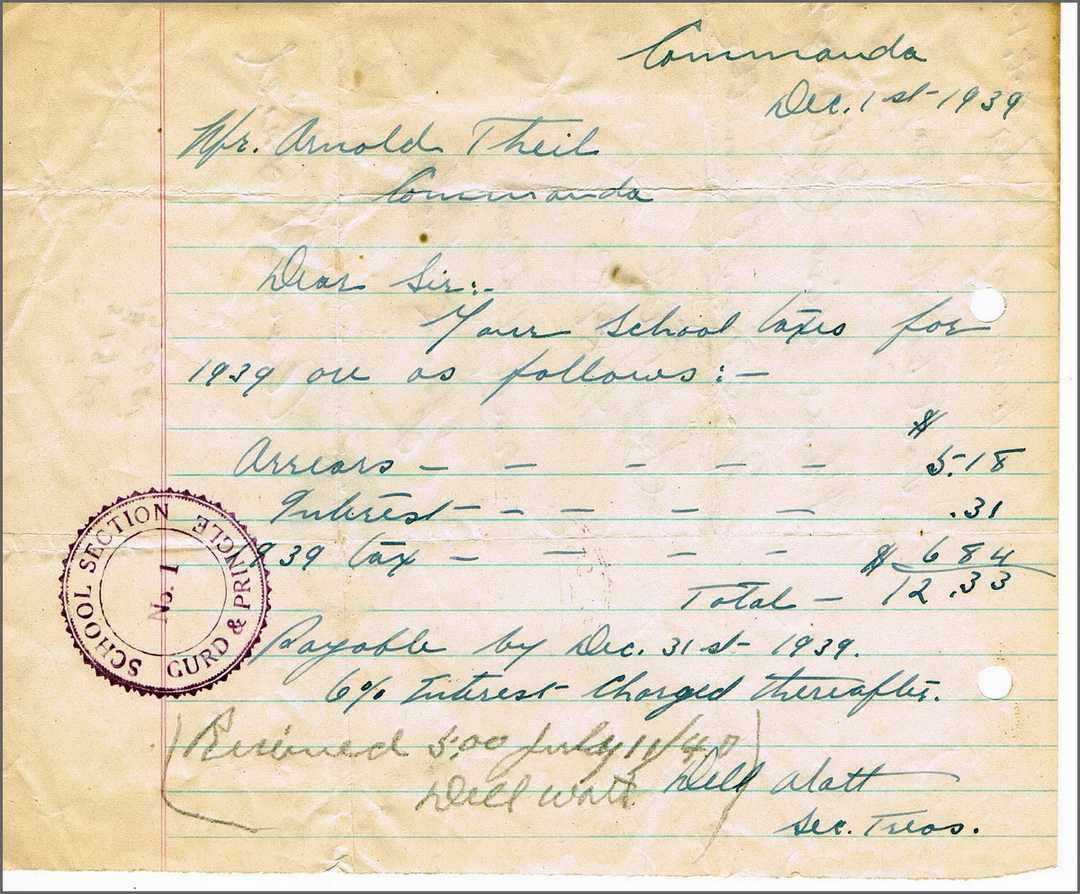 Commanda
Dec. 1st 1939
Mr. Arnold Theil
Commanda
Dear Sir:-
Your School taxes for
1939 are as follows:-
$
Arrears – – – – – 5.18
Interest – – – – – .31
1939 tax – – – – $ 6 84
Total – 12.33
Payable by Dec. 31st 1939.
6% Interest Charged thereafter.
(Received 5.00 July 11/40)
Dell Watt
Dell Watt
Sec. Treas.
SCHOOL SECTION
No. 1
GURD & PRINGLE